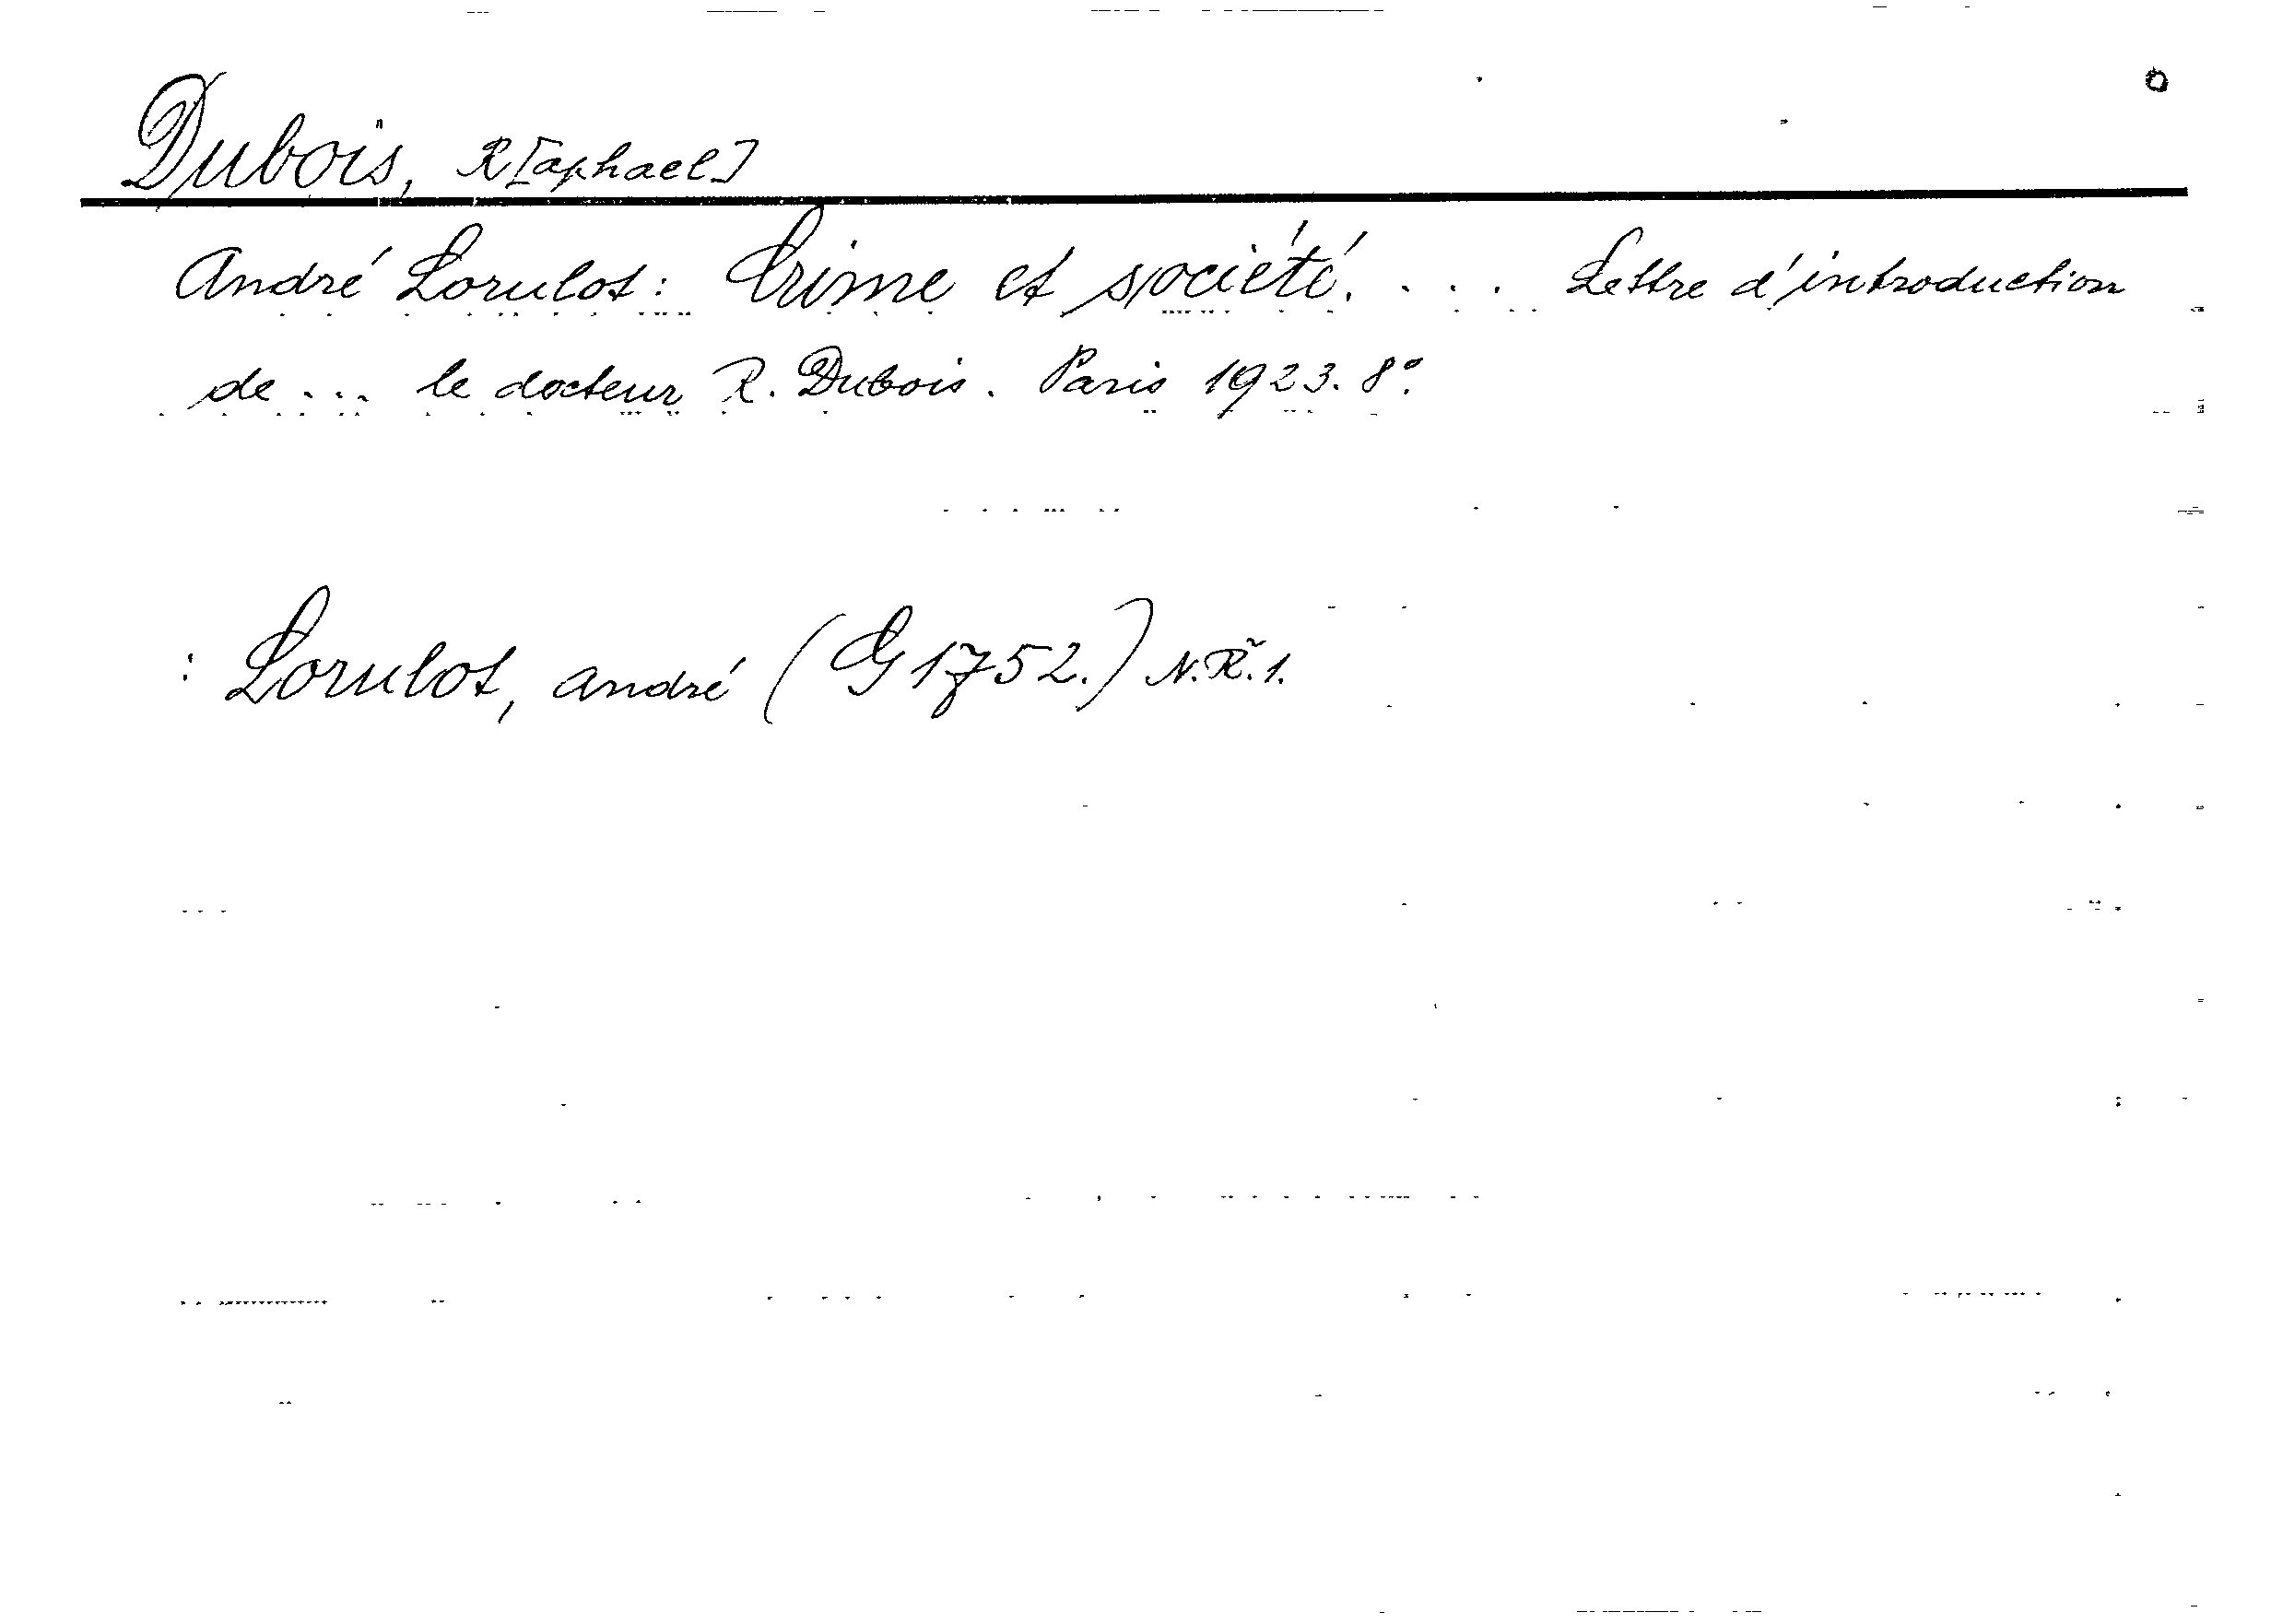 Dubois, R[aphael]
André Lorulot: Crime et société. ... Lettre d'introduction
de ... le docteur R. Dubois. Paris 1923. 8°.
: Lorulot, André (G 1752.) N.Ř.1.